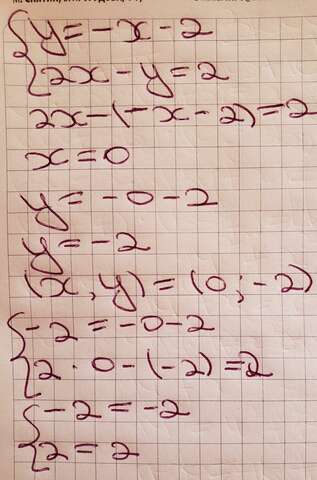 y = -x - 2
2x - y = 2
2x - (-x - 2) = 2
x = 0
y = -0 - 2
y = -2
(x, y) = (0; -2)
-2 = -0 - 2
2 · 0 - (-2) = 2
-2 = -2
2 = 2